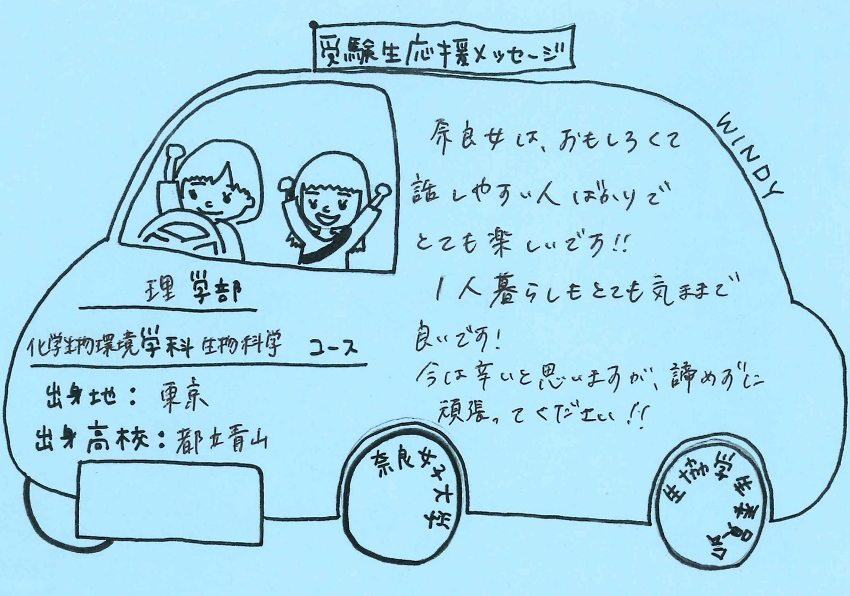 受験生応援メッセージ
WINDY
奈良女は、おもしろくて
話しやすい人ばかりで
とても楽しいです!!
1人暮らしもとても気ままで
良いです!
今は辛いと思いますが、諦めずに
頑張ってください!!
理学部
化学生物環境学科生物科学 コース
出身地:東京
出身高校:都立青山
奈良女子大学
生協学生委員会